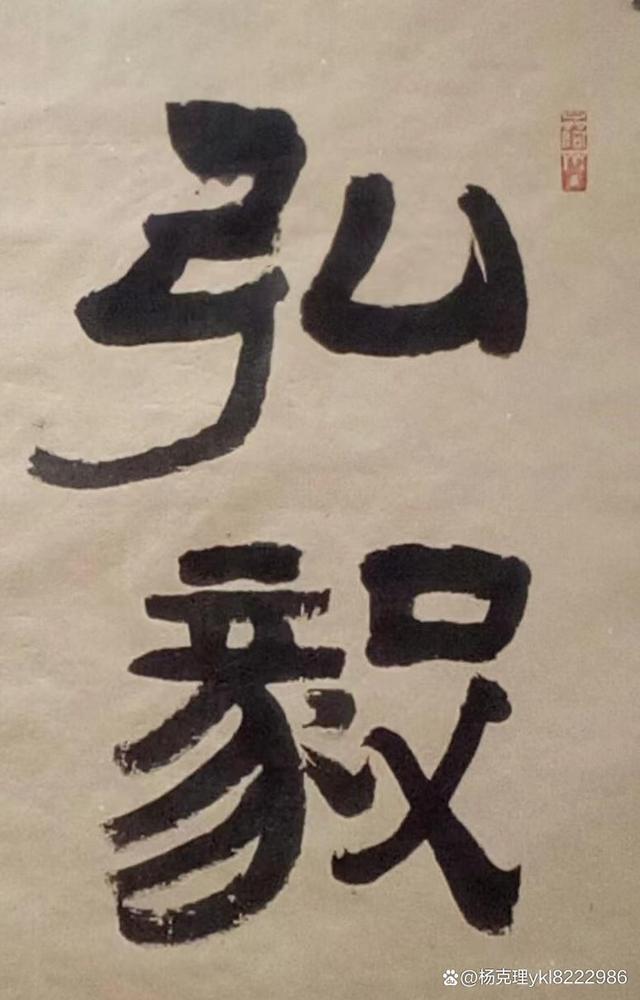 弘
毅
@杨克理ykl8222986